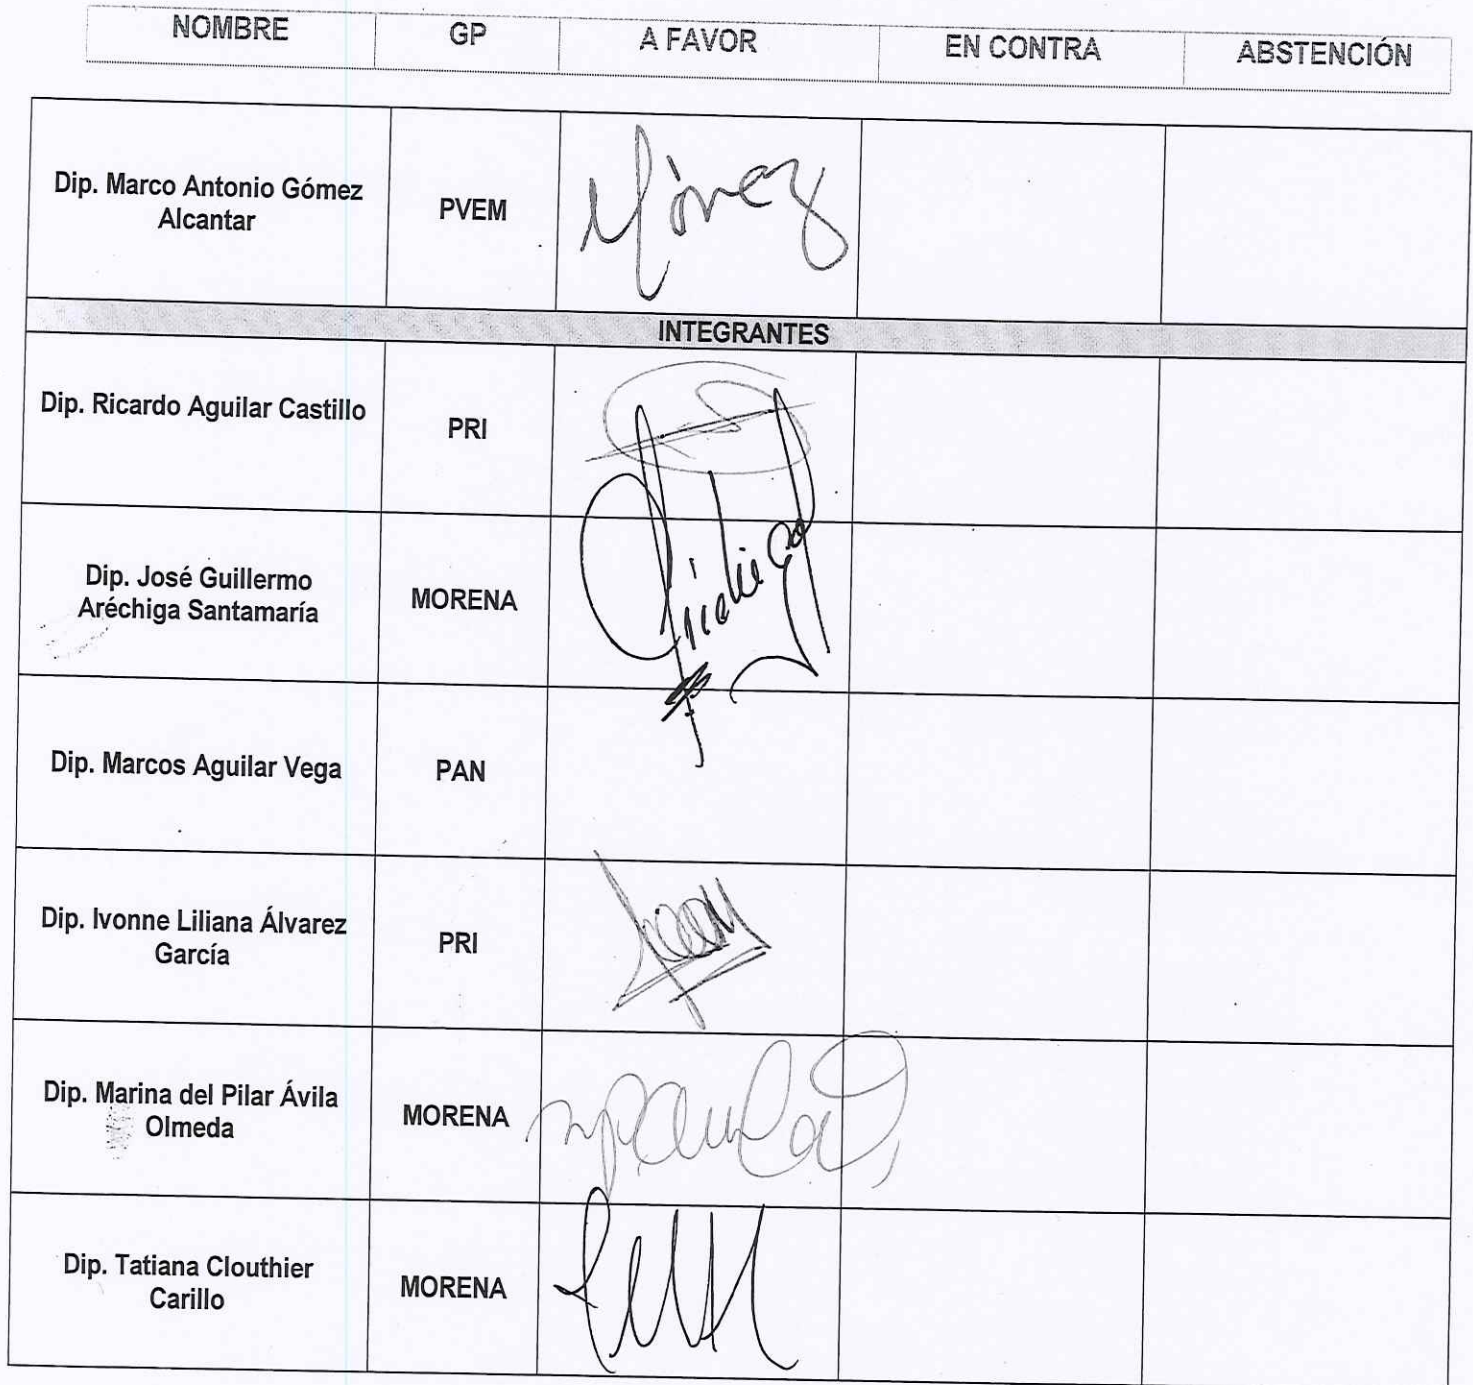 NOMBRE GP A FAVOR EN CONTRA ABSTENCIÓN
Dip. Marco Antonio Gómez
Alcantar
PVEM
INTEGRANTES
Dip. Ricardo Aguilar Castillo
PRI
Dip. José Guillermo
Aréchiga Santamaría
MORENA
Dip. Marcos Aguilar Vega
PAN
Dip. Ivonne Liliana Álvarez
García
PRI
Dip. Marina del Pilar Ávila
Olmeda
MORENA
Dip. Tatiana Clouthier
Carillo
MORENA